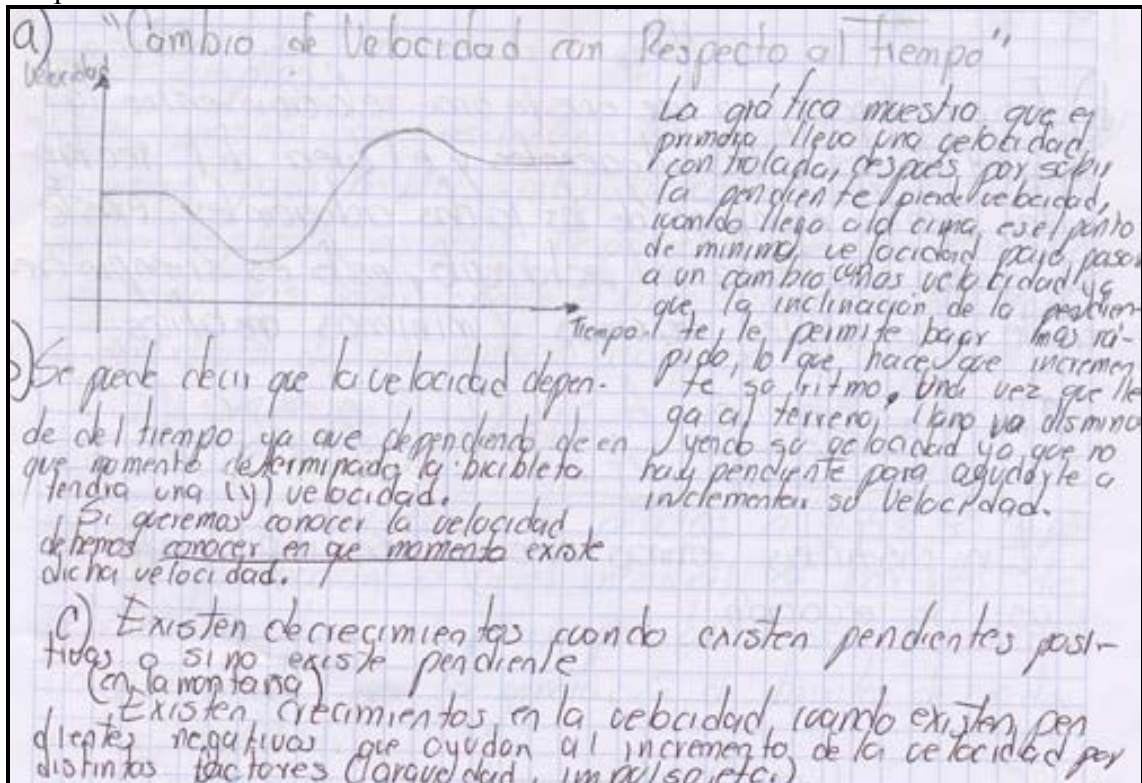 a) "Cambio de Velocidad con Respecto al tiempo"
Velocidad
tiempo
La gráfica muestra que en
primera lleva una velocidad
controlada, después por subir
la pendiente pierde velocidad,
cuando llega a la cima, es el punto
de minima velocidad para pasar
a un cambio con mas velocidad ya
que, la inclinación de la pendien-
te, le permite bajar mas rá-
pido, lo que hace que incremen
te su ritmo. Una vez que lle
ga al terreno, llano va disminu
yendo su velocidad ya que no
hay pendiente para ayudarle a
incrementar su velocidad.
b) Se puede decir que la velocidad depen-
de del tiempo, ya que dependiendo de en
que momento determinado la bicibleta
tendra una (y) velocidad.
Si queremos conocer la velocidad
debemos conocer en que momento existe
dicha velocidad.
c) Existen decrecimientos cuando existen pendientes posi-
tivas o si no existe pendiente
(en la montaña)
Existen crecimientos en la velocidad, cuando existen pen
dientes negativas que ayudan al incremento de la velocidad por
distintos factores (la gravedad, impulso, etc.)